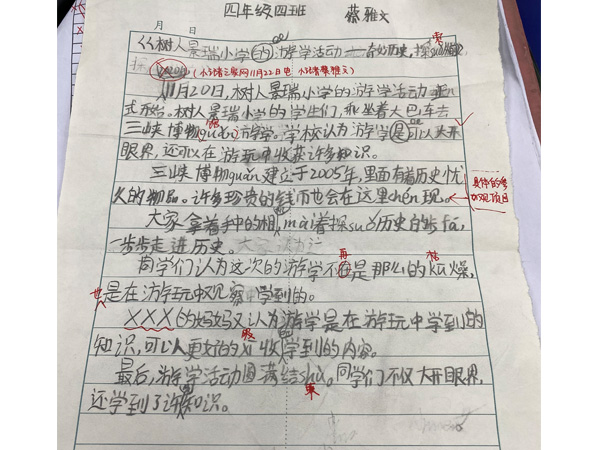 四年级四班 蔡雅文
月 日
《树人景瑞小学 游学活动——奇妙历史,探suǒ
探
(小记者之家网11月22日电 小记者蔡雅文)
11月20日,树人景瑞小学的游学活动正
式开始。树人景瑞小学的学生们,乘坐着大巴车去
三峡博物guǎn游学。学校认为游学是可以大开
眼界,还可以在游玩中收获许多知识。
三峡博物guǎn建立于2005年,里面有着历史忧
久的物品。许多珍贵的钱币也会在这里chén现。
具体的参
观项目
大家拿着手中的相,mài着探suǒ历史的步fá,
一步步走进历史。
再 枯
同学们认为这次的游学不在是那么的kū燥,
也是在游玩中观察学到的。
XXX的妈妈又认为游学是在游玩中学到的
吸
知识,可以更好的xī收学到的内容。
最后,游学活动圆满结shù。同学们不仅大开眼界,
束
还学到了许知识。